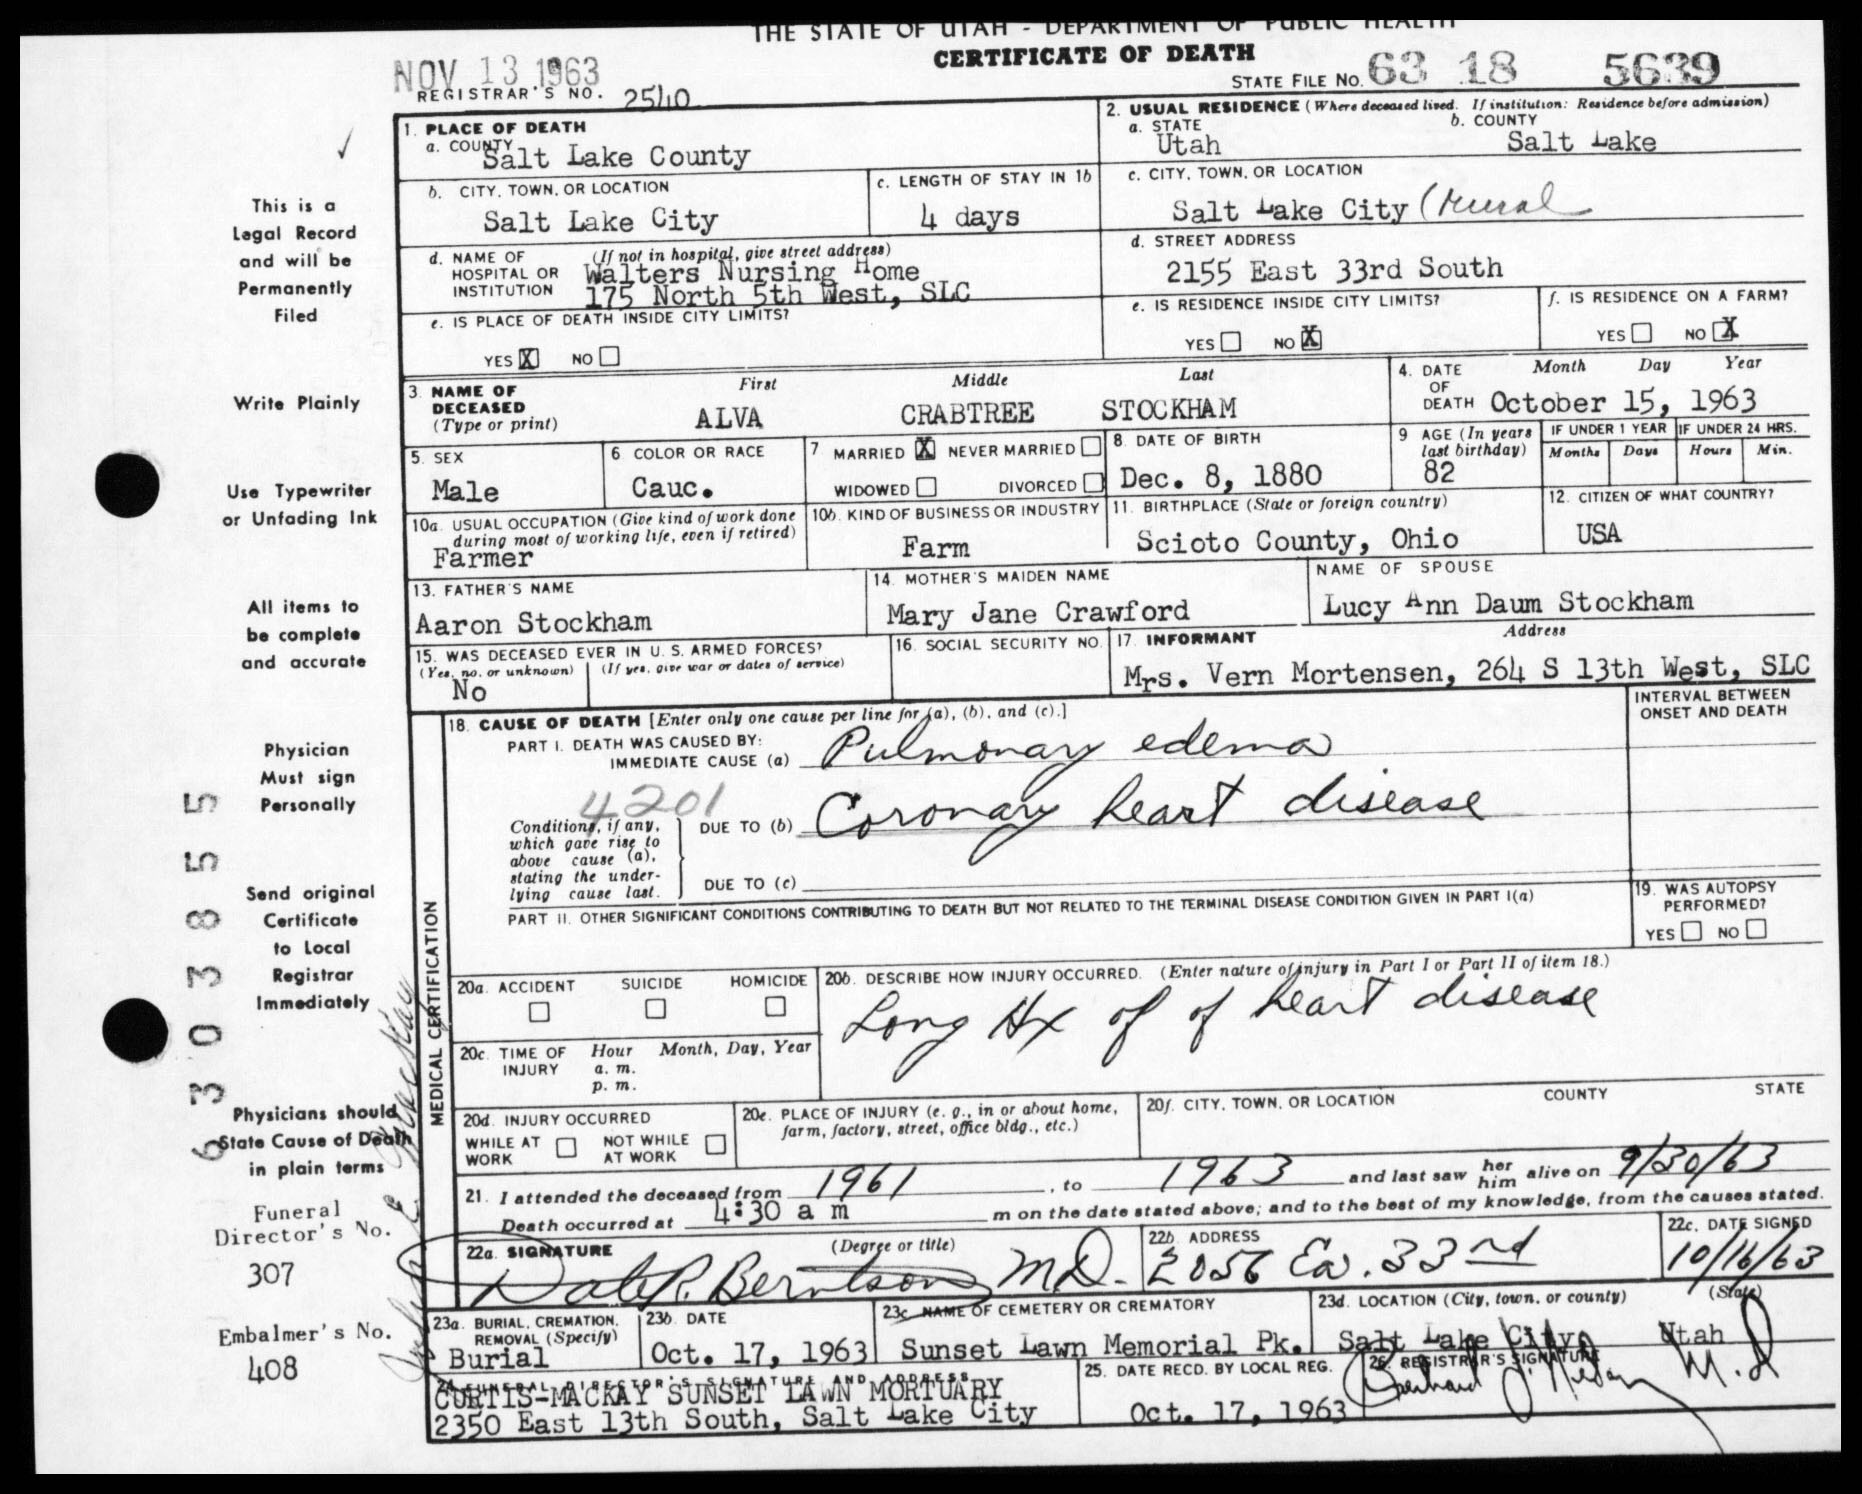 THE STATE OF UTAH - DEPARTMENT OF PUBLIC HEALTH
CERTIFICATE OF DEATH
NOV 13 1963
REGISTRAR'S NO. 2540
STATE FILE NO. 63 18 5639
1. PLACE OF DEATH
a. COUNTY
Salt Lake County
2. USUAL RESIDENCE (Where deceased lived. If institution: Residence before admission)
a. STATE
Utah
b. COUNTY
Salt Lake
b. CITY, TOWN, OR LOCATION
Salt Lake City
c. LENGTH OF STAY IN 1b
4 days
c. CITY, TOWN, OR LOCATION
Salt Lake City (rural
d. NAME OF HOSPITAL OR INSTITUTION
(If not in hospital, give street address)
Walters Nursing Home
175 North 5th West, SLC
d. STREET ADDRESS
2155 East 33rd South
e. IS PLACE OF DEATH INSIDE CITY LIMITS?
YES X NO
e. IS RESIDENCE INSIDE CITY LIMITS?
YES NO X
f. IS RESIDENCE ON A FARM?
YES NO X
3. NAME OF DECEASED (Type or print)
First Middle Last
ALVA CRABTREE STOCKHAM
4. DATE OF DEATH
Month Day Year
October 15, 1963
5. SEX
Male
6 COLOR OR RACE
Cauc.
7 MARRIED X NEVER MARRIED
WIDOWED DIVORCED
8. DATE OF BIRTH
Dec. 8, 1880
9 AGE (In years last birthday)
82
IF UNDER 1 YEAR
Months Days
IF UNDER 24 HRS.
Hours Min.
10a. USUAL OCCUPATION (Give kind of work done during most of working life, even if retired)
Farmer
10b. KIND OF BUSINESS OR INDUSTRY
Farm
11. BIRTHPLACE (State or foreign country)
Scioto County, Ohio
12. CITIZEN OF WHAT COUNTRY?
USA
13. FATHER'S NAME
Aaron Stockham
14. MOTHER'S MAIDEN NAME
Mary Jane Crawford
NAME OF SPOUSE
Lucy Ann Daum Stockham
15. WAS DECEASED EVER IN U. S. ARMED FORCES?
(Yes, no, or unknown) (If yes, give war or dates of service)
No
16. SOCIAL SECURITY NO.
17. INFORMANT Address
Mrs. Vern Mortensen, 264 S 13th West, SLC
MEDICAL CERTIFICATION
18. CAUSE OF DEATH [Enter only one cause per line for (a), (b), and (c).]
INTERVAL BETWEEN ONSET AND DEATH
PART I. DEATH WAS CAUSED BY:
IMMEDIATE CAUSE (a) Pulmonary edema
4201
Conditions, if any, which gave rise to above cause (a), stating the underlying cause last.
DUE TO (b) Coronary heart disease
DUE TO (c)
PART II. OTHER SIGNIFICANT CONDITIONS CONTRIBUTING TO DEATH BUT NOT RELATED TO THE TERMINAL DISEASE CONDITION GIVEN IN PART I(a)
19. WAS AUTOPSY PERFORMED?
YES NO
20a. ACCIDENT SUICIDE HOMICIDE
20b. DESCRIBE HOW INJURY OCCURRED. (Enter nature of injury in Part I or Part II of item 18.)
Long Hx of of heart disease
20c. TIME OF INJURY
Hour Month, Day, Year
a. m.
p. m.
20d. INJURY OCCURRED
WHILE AT WORK NOT WHILE AT WORK
20e. PLACE OF INJURY (e. g., in or about home, farm, factory, street, office bldg., etc.)
20f. CITY, TOWN, OR LOCATION COUNTY STATE
21. I attended the deceased from 1961, to 1963 and last saw her him alive on 9/30/63
Death occurred at 4:30 a m m on the date stated above; and to the best of my knowledge, from the causes stated.
22a. SIGNATURE (Degree or title)
Dale R. Berntson M.D.
22b. ADDRESS
2056 Ea. 33rd
22c. DATE SIGNED
10/16/63
23a. BURIAL, CREMATION, REMOVAL (Specify)
Burial
23b. DATE
Oct. 17, 1963
23c NAME OF CEMETERY OR CREMATORY
Sunset Lawn Memorial Pk.
23d. LOCATION (City, town, or county) (State)
Salt Lake City, Utah
24. FUNERAL DIRECTOR'S SIGNATURE AND ADDRESS
CURTIS-MACKAY SUNSET LAWN MORTUARY
2350 East 13th South, Salt Lake City
25. DATE RECD. BY LOCAL REG.
Oct. 17, 1963
26. REGISTRAR'S SIGNATURE
M.D
This is a
Legal Record
and will be
Permanently
Filed
Write Plainly
Use Typewriter
or Unfading Ink
All items to
be complete
and accurate
Physician
Must sign
Personally
Send original
Certificate
to Local
Registrar
Immediately
Physicians should
State Cause of Death
in plain terms
Funeral
Director's No.
307
Embalmer's No.
408
63038555